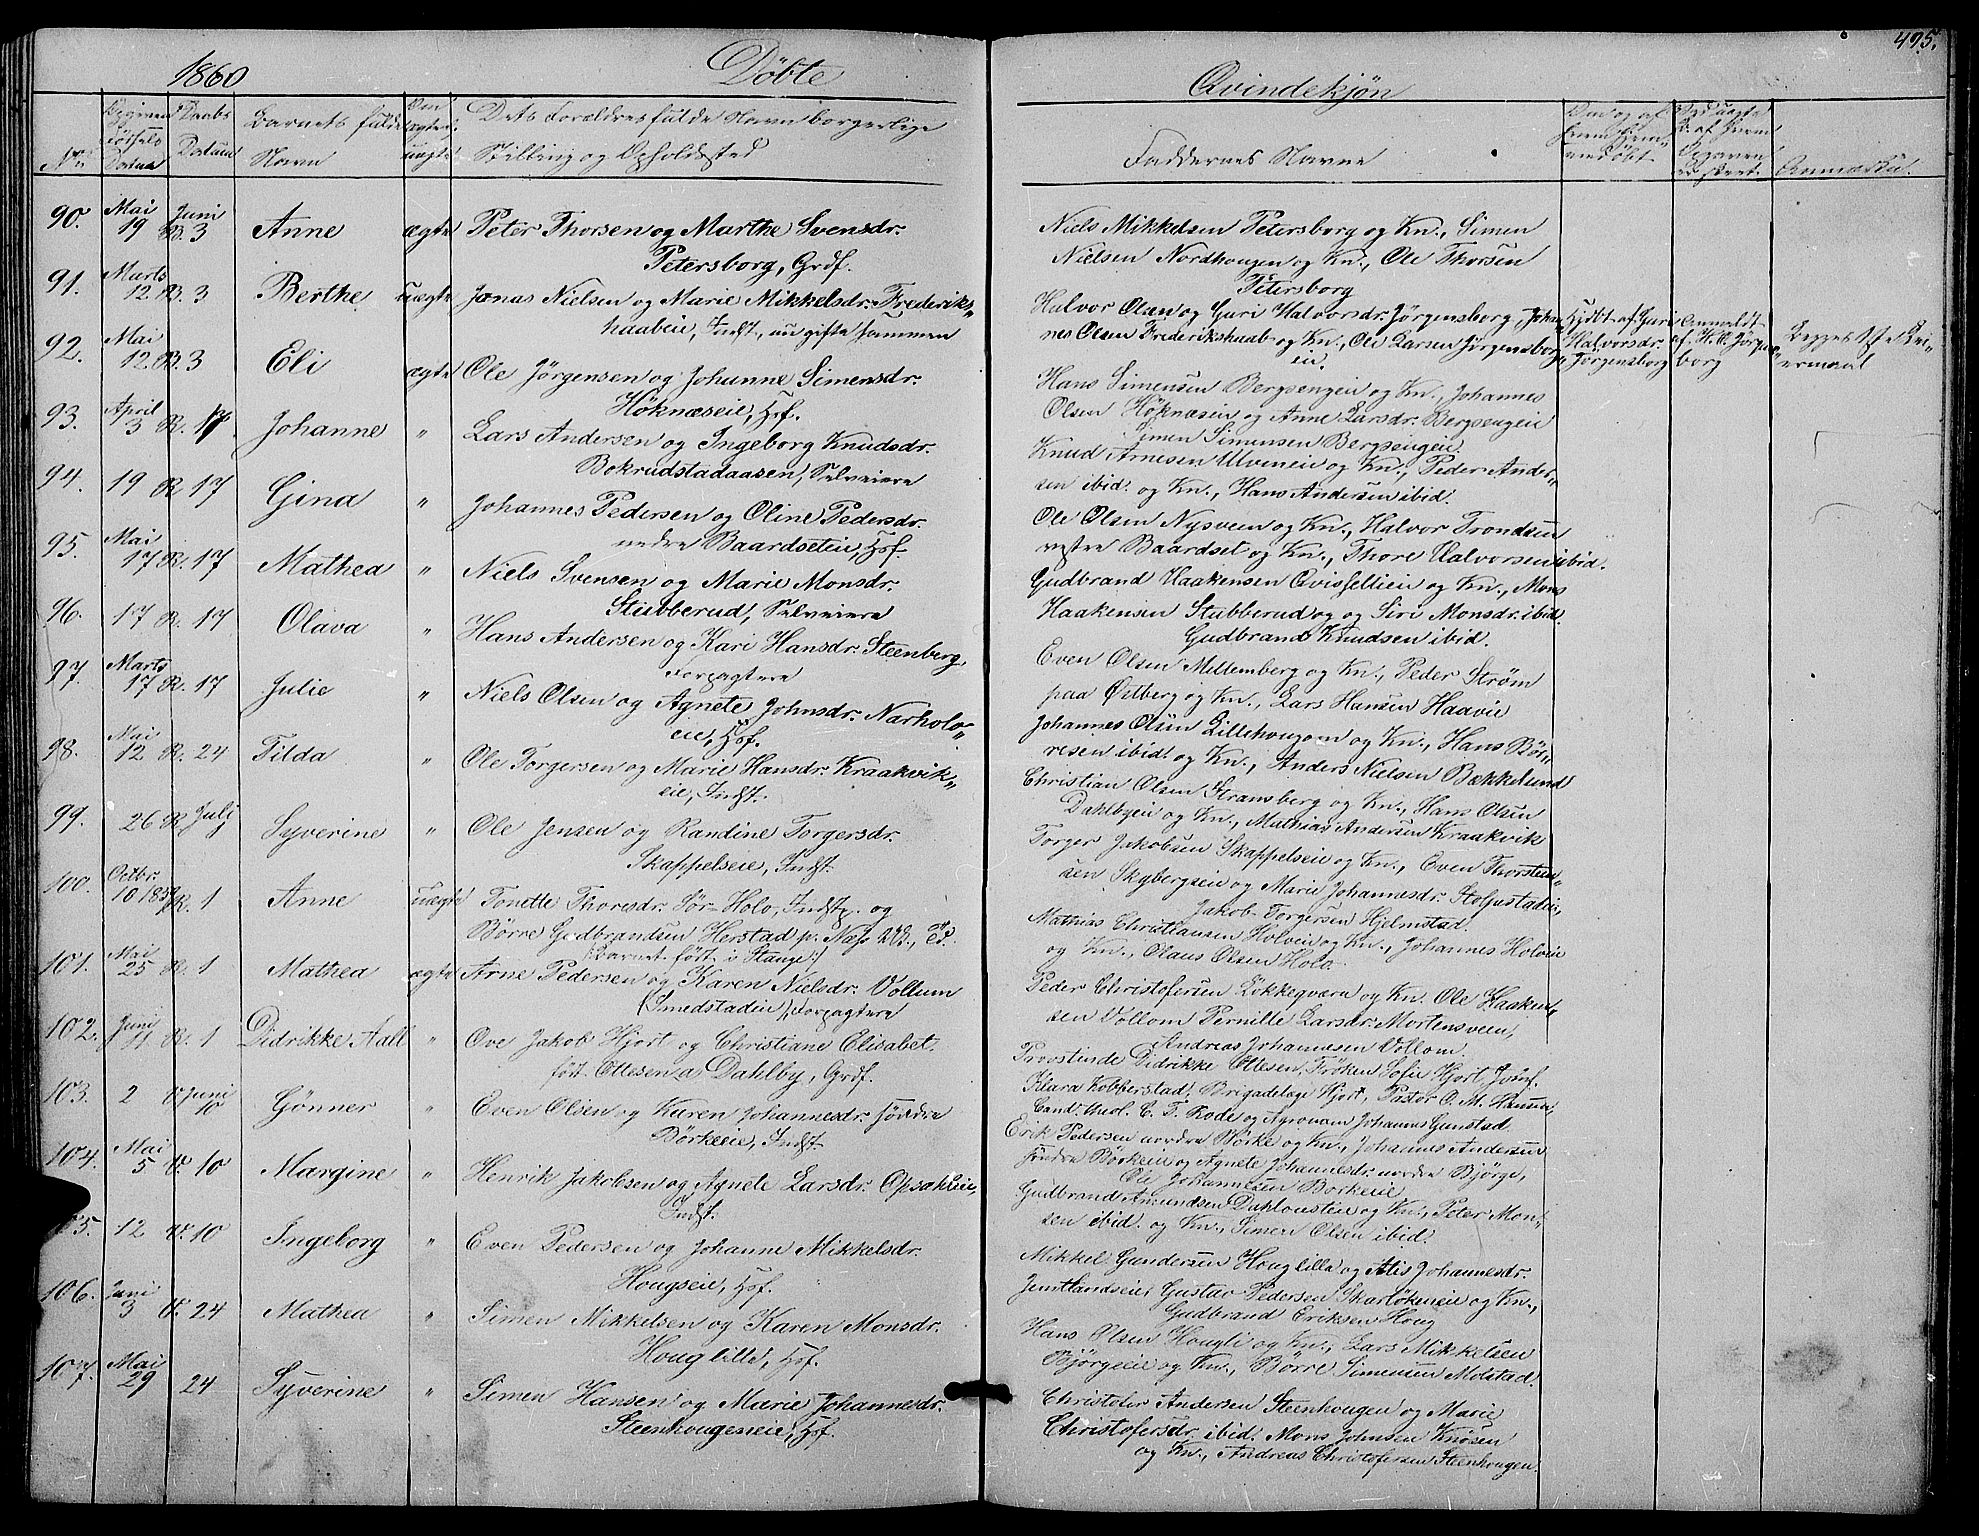 1860
Döbte
Qvindekjön
495.
No
Daabs Datum
Barnets fulde Navn
Dets Forældres fulde Navn borgerlige Stilling og Opholdssted
Faddernes Navne
90. Mai 19 Juni R. 3 Anne ægte Peter Thorsen og Marthe Svensdr.
Petersborg, Grdf.
Niels Mikkelsen Petersborg og Kn., Simen
Nielsen Nordhougen og Kn., Ole Thorsen
Petersborg
91. Marts 12 R. 3 Berthe uægte Jonas Nielsen og Marie Mikkelsdr. Frederiks„
haabeie, Indst., ugifte sammen
Halvor Olsen og Guri Halvorsdr. Jörgensborg, Johan„
nes Olsen Frederikshaab og Kn., Ole Larsen Jörgensborg„
ei.
Hjdbt af Guri
Halvorsdr.
Jörgensborg
Anmeldt
af H. O. Jörgens„
borg
Begges 1ste Lei„
ermaal
92. Mai 12 R. 3 Eli ægte Ole Jörgensen og Johanne Simensdr.
Höknæseie, Hsf.
Hans Simensen Bergsengeie og Kn., Johannes
Olsen Höknæseie og Anne Larsdr. Bergsengeie
Simen Simensen Bergsengeie.
93. April 3 R. 17 Johanne „ Lars Andersen og Ingeborg Knudsdr.
Bokrudstadaasen, Selveiere
Knud Arnesen Ulveneie og Kn., Peder Ander„
sen ibid. og Kn., Hans Andersen ibid.
94. 19 R. 17 Gina „ Johannes Pedersen og Oline Pedersdr.
nedre Baardseteie, Hsf.
Ole Olsen Nysveen og Kn., Halvor Trondsen
vestre Baardset og Kn., Thore Halvorsen ibid.
95. Mai 17 R. 17 Mathea „ Niels Svensen og Marie Monsdr.
Stubberud, Selveiere
Gudbrand Haakensen Qvisfelleie og Kn., Mons
Haakensen Stubberud og og Siri Monsdr. ibid.
Gudbrand Knudsen ibid.
96. 17 R. 17 Olava „ Hans Andersen og Kari Hansdr. Steenberg,
Forpagtere
Even Olsen Mellemberg og Kn., Peder Ström
paa Östberg og Kn., Lars Hansen Haavie
97. Marts 17 R. 17 Julie „ Niels Olsen og Agnete Johnsdr. Narholo„
eie, Hsf.
Johannes Olsen Lillehougom og Kn., Hans Bör„
resen ibid. og Kn., Anders Nielsen Bækkelund
98. Mai 12 R. 24 Tilda „ Ole Torgersen og Marie Hansdr. Kraakvik„
eie, Indst.
Christian Olsen Stramsberg og Kn., Hans Olsen
Dahlbyeie og Kn., Mathias Andersen Kraakvik
99. 26 R. Julj Syverine „ Ole Jensen og Randine Torgersdr.
Skappelseie, Indst.
Torger Jakobsen Skappelseie og Kn., Even Thorsten„
sen Skybergseie og Marie Johannesdr. Stolgustadeie,
Jakob Torgersen Hjelmstad.
100. Octbr. 10 1859 R. 1 Anne uægte Tonette Thoresdr. Sör-Holo, Indstp. og
Börre Gudbrandsen Herstad p. Næs
(Barnet födt i Stange)
Mathias Christiansen Holveie og Kn., Johannes Holveie
og Kn., Olaus Olsen Holo.
101. Mai 25 R. 1 Mathea ægte Arne Pedersen og Karen Nielsdr. Vollum
(Smedstadeie), Forpagtere
Peder Christofersen Lökkeqværn og Kn. Ole Haaken„
sen Vollom Pernille Larsdr. Mortensveen,
Andreas Johannesen Vollom.
102. Juni 11 R. 1 Didrikke Aall „ Ove Jakob Hjort og Christiane Elisabet.
födt Ottesen a Dahlby, Grdf.
Provstinde Didrikke Ottesen, Fröken Sofie Hjort, Jomf.
Klara Kobberstad, Brigadelæge Hjort, Pastor O. M. Hansen,
Cand. theol. C. F. Rode og Agronom Johannes Gunstad
103. 2 V. Juni 10 Gönner „ Even Olsen og Karen Johannesdr. söndre
Börkeeie, Indst.
Erik Pedersen nordre Börke og Kn., Johannes Andersen
söndre Börkeie og Agnete Johannesdr. nordre Bjørge,
Ole Johannesen Borkeeie,
104. Mai 5 V. 10 Margine „ Henrik Jakobsen og Agnete Larsdr. Opsahleie,
Indst.
Gudbrand Amundsen Dahlousteie og Kn., Peter Mon„
sen ibid. og Kn., Simen Olsen ibid.
5. 12 V. 10 Ingeborg „ Even Pedersen og Johanne Mikkelsdr.
Hougseie, Hsf.
Mikkel Gundersen Houglille og Alis Johannesdr.
Jemtlandseie, Gustav Pedersen Skarlökeneie og Kn.,
Gudbrand Eriksen Houg
106. Juni 3 V. 24 Mathea „ Simen Mikkelsen og Karen Monsdr.
Houglille, Hsf.
Hans Olsen Hougli og Kn., Lars Mikkelsen
Bjørgeeie og Kn., Borre Simensen Molstad.
107. Mai 29 24 Syverine „ Simen Hansen og Marie Johannesdr.
Steenhougeneie, Hsf.
Christofer Andersen Steenhougen og Marie
Christofersdr. ibid. Mons Johnsen Knösen
og Kn., Andreas Christofersen Steenhougen.